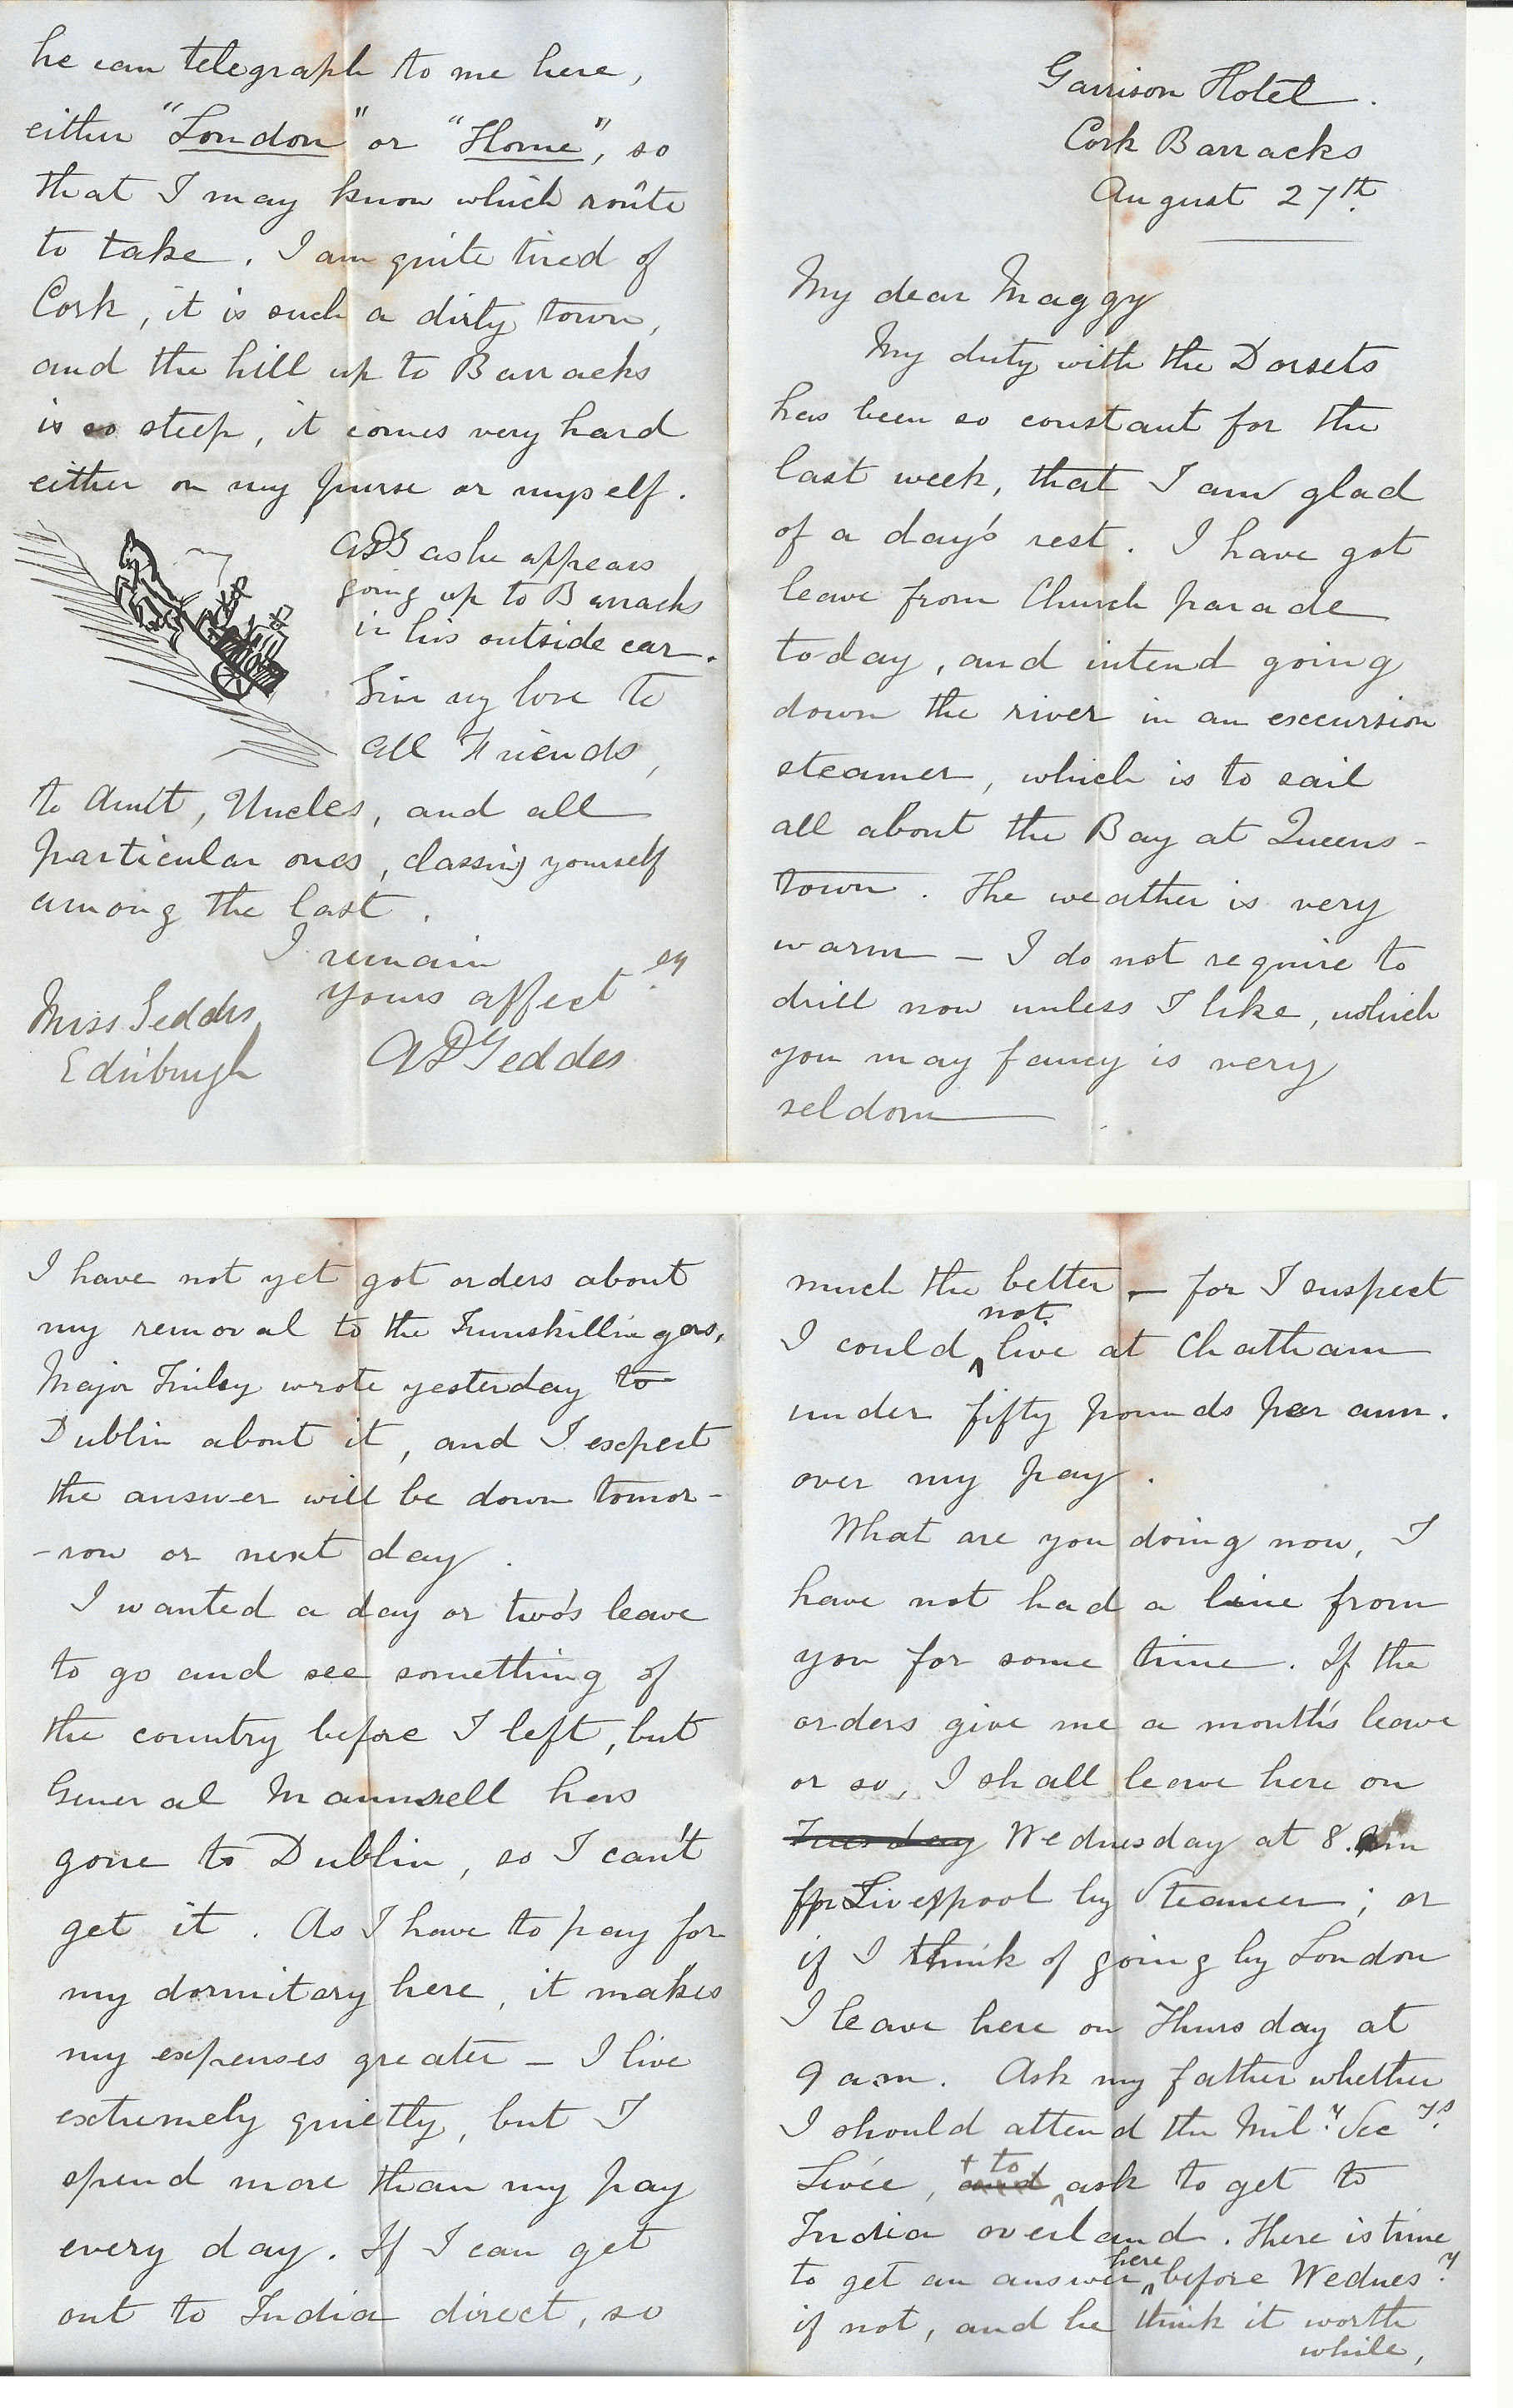 Garrison Hotel.
Cork Barracks
August 27th.
My dear Maggy
My duty with the Dorsets
has been so constant for the
last week, that I am glad
of a day's rest. I have got
leave from Church parade
to-day, and intend going
down the river in an excursion
steamer, which is to sail
all about the Bay at Queens-
town. The weather is very
warm — I do not require to
drill now unless I like, which
you may fancy is very
seldom
I have not yet got orders about
my removal to the Inniskillingers,
Major wrote yesterday to
Dublin about it, and I expect
the answer will be down tomor-
-row or next day.
I wanted a day or two's leave
to go and see something of
the country before I left, but
General Maunsell has
gone to Dublin, so I can't
get it. As I have to pay for
my dormitory here, it makes
my expenses greater — I live
extremely quietly, but I
spend more than my pay
every day. If I can get
out to India direct, so
much the better — for I suspect
I could not live at Chatham
under fifty pounds per ann.
over my pay.
What are you doing now, I
have not had a line from
you for some time. If the
orders give me a month's leave
or so, I shall leave here on
Tuesday Wednesday at 8. am
for Liverpool by Steamer; or
if I think of going by London
I leave here on Thursday at
9 a.m. Ask my father whether
I should attend the Mily. Secys.
Levée, and + to ask to get to
India overland. There is time
to get an answer here before Wednesy.
if not, and he think it worth
while,
he can telegraph to me here,
either "London" or "Home", so
that I may know which route
to take. I am quite tired of
Cork, it is such a dirty town,
and the hill up to Barracks
is so steep, it comes very hard
either on my purse or myself.
ADG as he appears
going up to Barracks
in his outside car.
Give my love to
all Friends,
to Aunt, Uncles, and all
particular ones, classing yourself
among the last.
I remain
yours affectly.
ADGeddes
Miss Geddes
Edinburgh